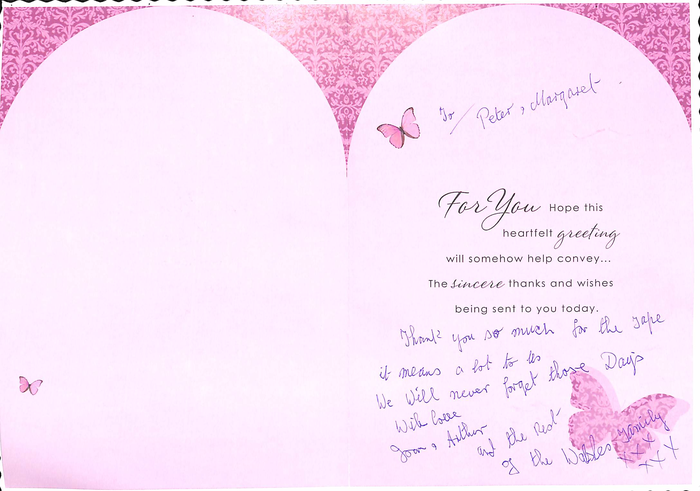 To / Peter & Margaret
For You Hope this
heartfelt greeting
will somehow help convey...
The sincere thanks and wishes
being sent to you today.
Thank you so much for the Tape
it means a lot to us
We Will never forget those Days
With love
Joan & Arthur and the rest
of the Family
xxx
xxx